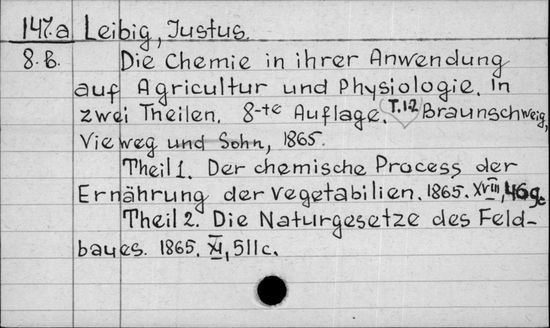 147.a Leibig, Justus.
8.B. Die Chemie in ihrer Anwendung
auf Agricultur und Physiologie. In
zwei Theilen. 8-te Auflage. T.1-2 Braunschweig,
Vieweg und Sohn, 1865.
Theil 1. Der chemische Process der
Ernährung der Vegetabilien. 1865. XVIII, 469c
Theil 2. Die Naturgesetze des Feld-
baues. 1865. XI, 511c.